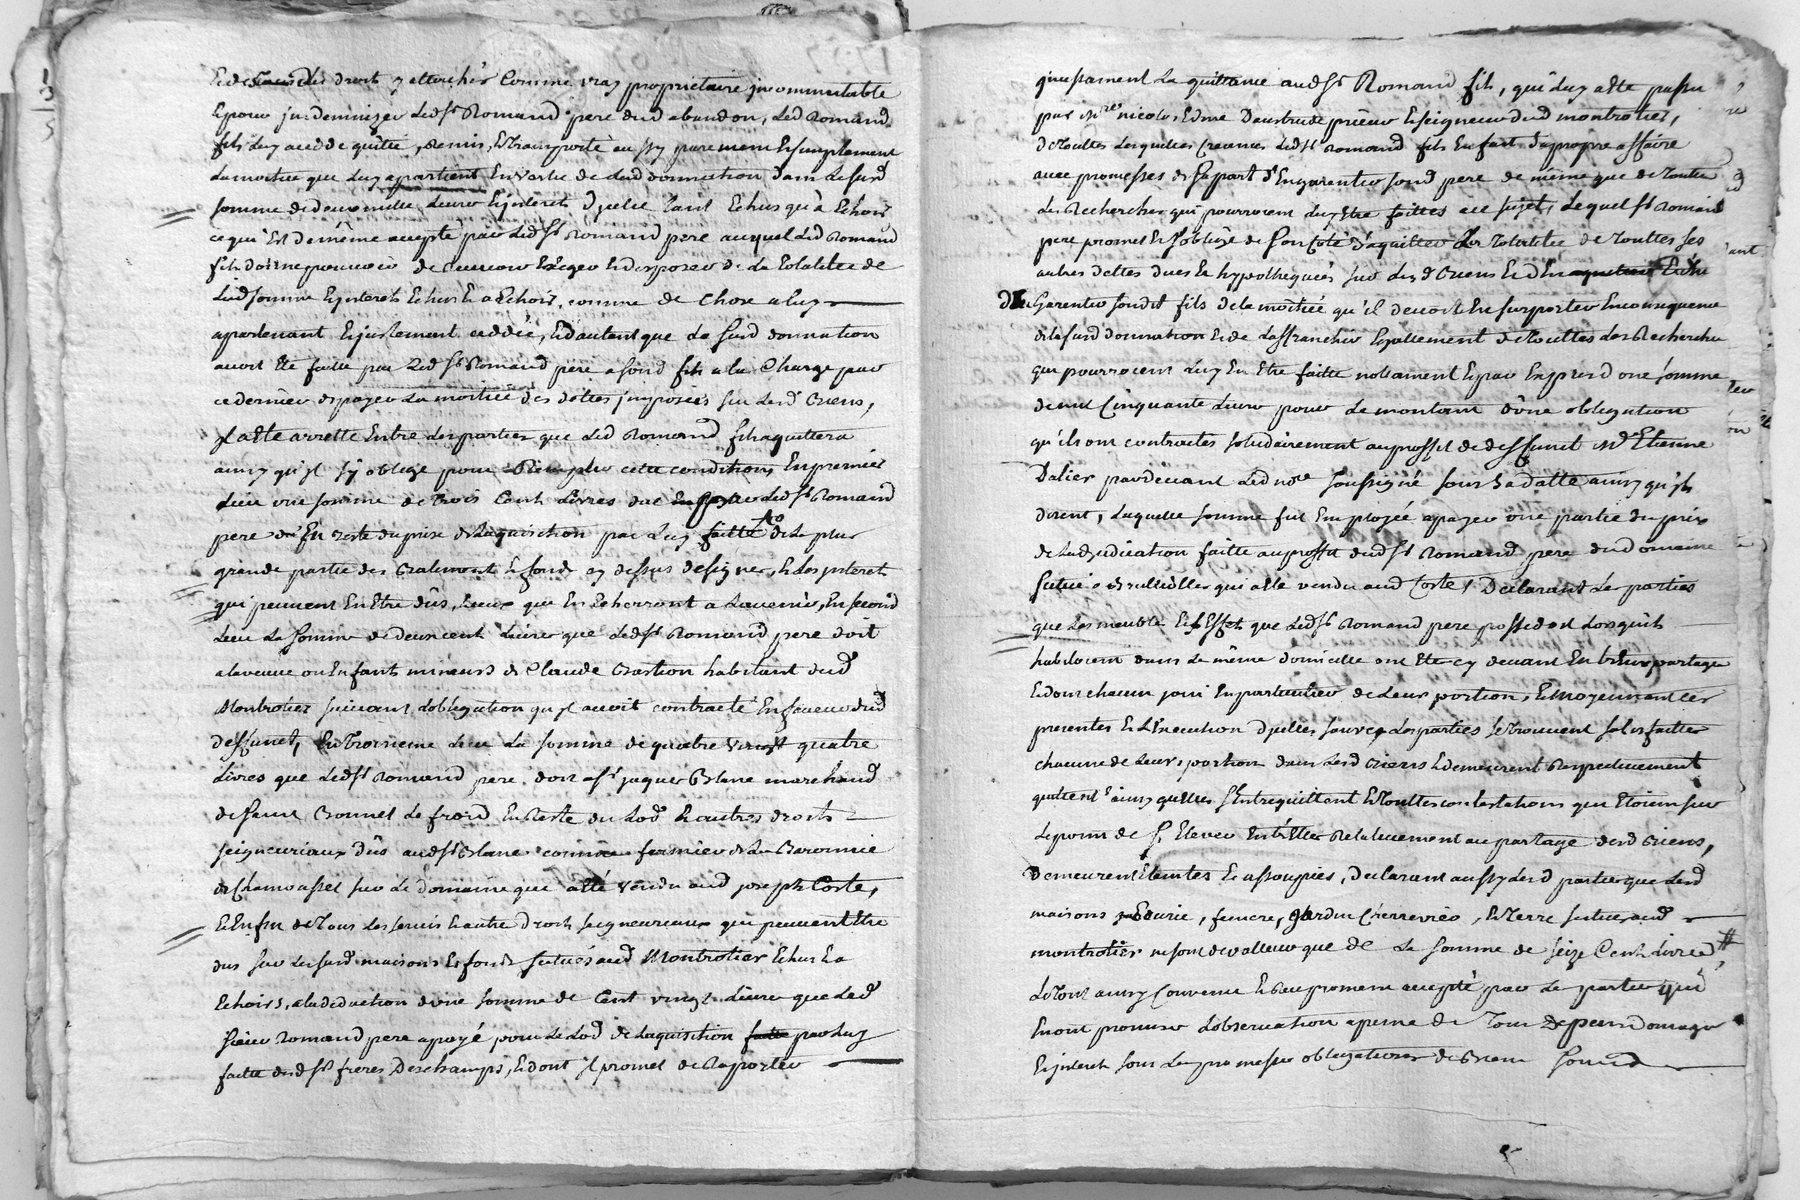 et de tous les droits y attachés comme vray proprietaire jncommutable
Et pour jndemniser Led Sr Romand pere dud abandon, Led Romand
fils luy a cedde quitté, remis, Et transporté aussy purement Et simplement
La moitiée que luy appartient En vertu de lad donnation dans Lesusd
somme de deux mille livres Et jnterets d'jcelle tant Echus qu'a Echoir
ce qui Est de même accepté par Led Sr Romand pere auquel Led Romand
fils donne pouvoir de Exiger Et disposer de La totalitée de
Lad somme Et jnterets Echus Et a Echoir, comme de chose a luy
apartenant Et justement ceddée, Et d'autant que La susd donnation
avoit Eté faitte par Led Sr Romand pere a sond fils a la charge par
ce dernier de payer La moitiée des dettes jmposées sur Lesd Biens,
Jl a Eté arretté Entre Les parties que Led Romand fils aquittera
ainsy qu'jl s'y oblige pour Remplir cette condition, En premier
Lieu une somme de trois Cent Livres due Led Sr Romand
pere En reste du prix de L'aquisition par Luy faitte de La plus
grande partie des Batiment Et fonds cy dessus designés, Et Les jnterets
qui peuvent En Etre dûs, Et ceux que En Echerront a L'avenir, En second
Lieu La somme de deux cent Livres que Led Sr Romand pere doit
a la veuve ou Enfants mineurs de Claude Bastion habitant dud
Montrotier suivant L'obligation qu'jl avoit contracté En faveur dud
deffunct, En troisieme Lieu La somme de quatre vingt quatre
Livres que Led Sr Romand pere doit a Sr jaques Blanc marchand
de saint Bonnet Le froid En Reste du Lod Et autres droits
seigneuriaux dûs aud Sr Blanc comme fermier de La Baronnie
de Chamousset sur Le domaine que a Eté vendu aud joseph Coste,
Et Enfin de tous Les servis Et autre droits seigneuriaux qui peuvent Etre
dus sur Lesusd maisons Et fonds situés aud Montrotier Echus Et a
Echoirs, a la deduction d'une somme de Cent vingt Livres que Led
sieur Romand pere a payé pour Le Lod de L'aquisition par Luy
faitte desd Srs freres Deschamps, Et dont jl promet de Raporter
jncessament La quittance aud Sr Romand fils, qui Luy a Eté passée
par Mre nicolas Edme Daustrude prieur Et seigneur dud montrotier,
de touttes Lesquelles Creances Led Sr Romand fils En fait sa propre affaire
avec promesses de sa part d'En garentir sond pere de même que de toutte
Les Recherches qui pourroient Luy Etre faittes a ce sujet, Lequel Sr Romand
pere promet Et s'oblige de son Coté d'aquitter La totalitée de touttes Les
autres dettes dues Et hypothequées sur Lesd Biens Et d'En
Garentir sondit fils de la moitiée qu'il devoit En suporter En consequence
de la susd donnation Et de L'affranchir Egallement de touttes Les Recherches
qui pourroient Luy En Etre faitte nottament Et par Exprès d'une somme
de mil Cinquante Livre pour Le montant d'une obligation
qu'ils ont contractés solidairement au proffit de deffunct Me Etienne
Dalier pardevant Led nore soussigné sous sa datte ainsy qu'jls
disent, Laquelle somme fut Employée a payer une partie du prix
de L'adjudication faitte au proffit dud Sr Romand pere du Domaine
situé a qui a Eté vendu aud Coste, Declarant Les parties
que Les meubles Et Effets que Led Sr Romand pere possedoit Lorsqu'ils
habitoient dans Le même domicille ont Eté cy devant Entr'Eux partagés
Et dont chacun joui En particulier de Leur portion, Et moyennant Les
presentes Et L'Execution d'jcelles Les parties se trouvent satisfaittes
chacune de Leurs portion dans Lesd Biens Et demeurent Respectivement
quittent ainsy qu'elles s'Entrequittent Et touttes contestations qui Etoient sur
Le point de s'Elever Entr'Elles Relativement au partage desd Biens,
Demeurent Eteintes Et assoupies, Declarant aussy Lesd parties que Lesd
maisons Ecurie, feniere, jardin Et terre situés aud
montrotier ne sont de valleur que de La somme de seize Cents Livres,
Le tout ainsy convenu Et reciproquement accepté par Les parties qui
En ont promis L'observation a peine de tous depens Domages
Et jnterets sous Les promesses obligations de Biens soumis